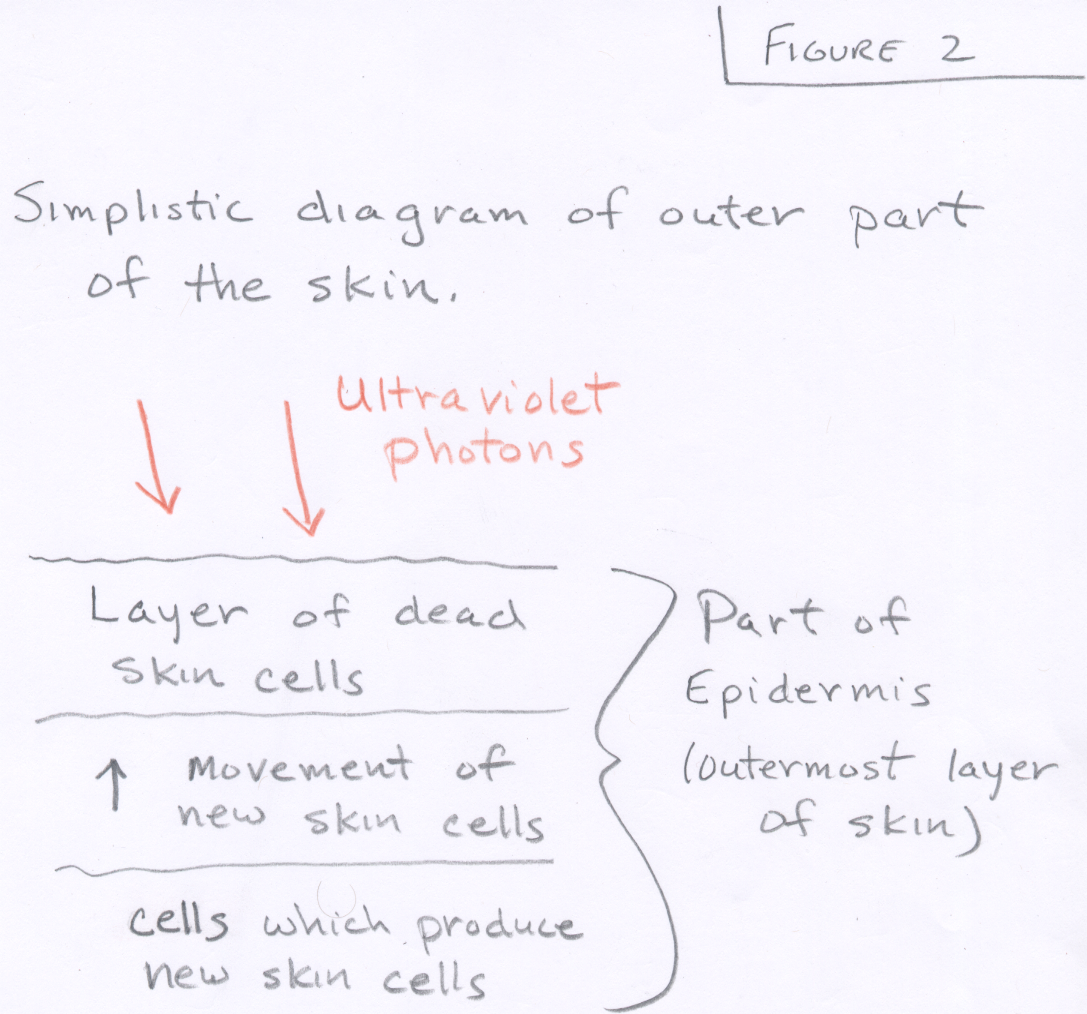 FIGURE 2
Simplistic diagram of outer part
of the skin.
Ultraviolet
photons
Layer of dead
skin cells
↑ Movement of
new skin cells
cells which produce
new skin cells
Part of
Epidermis
(outermost layer
of skin)